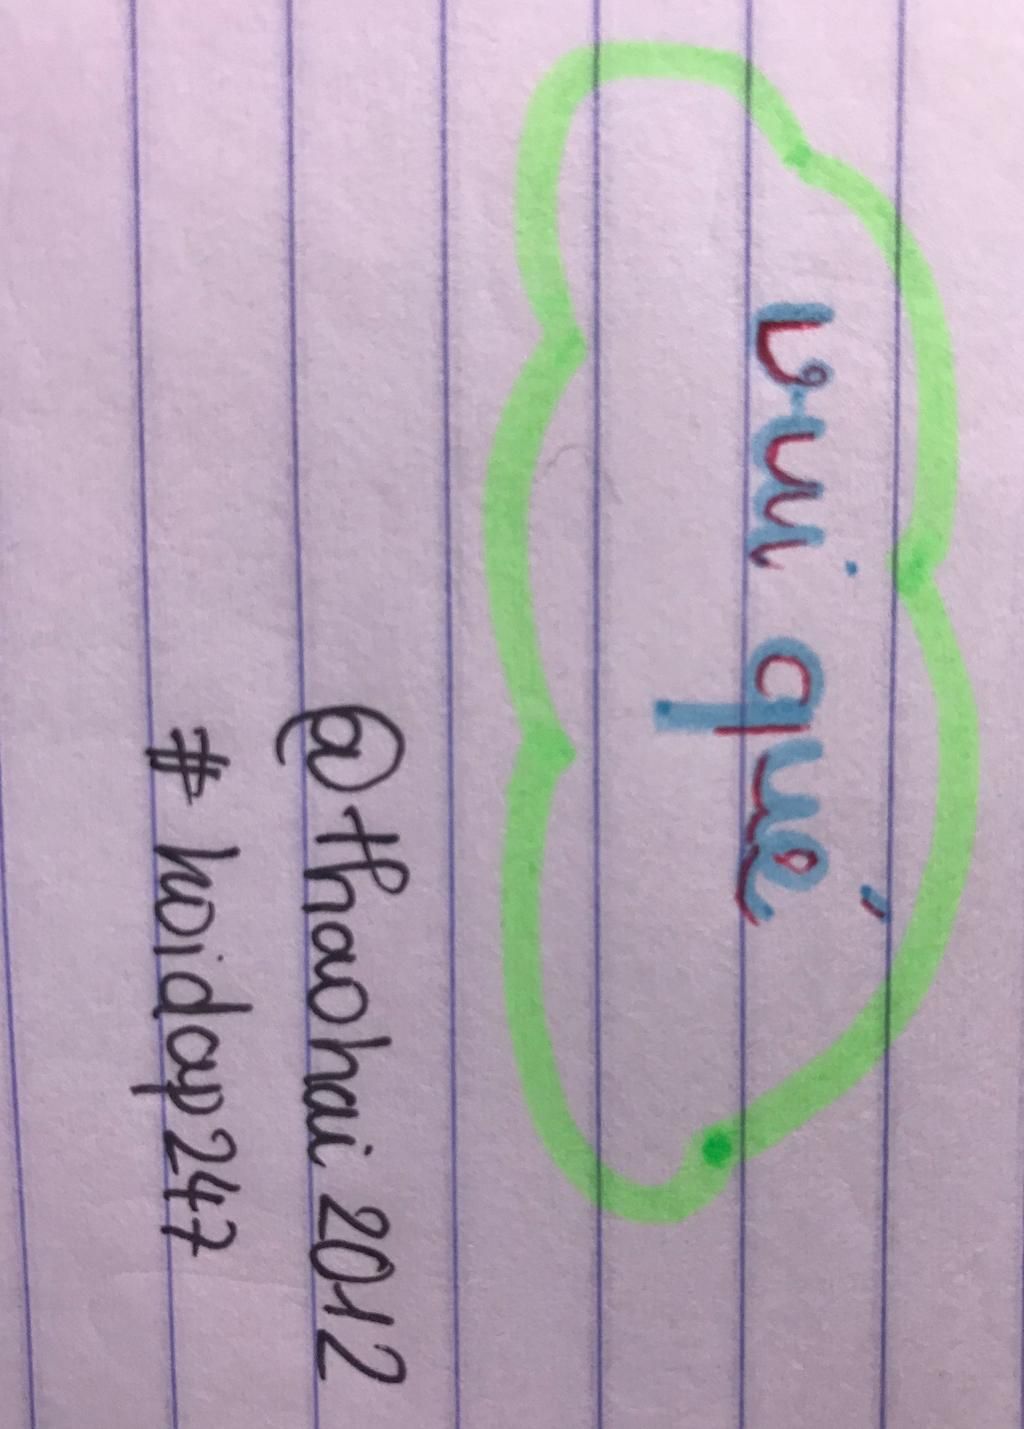 vui qué
@thaohai2012
# hoidap247